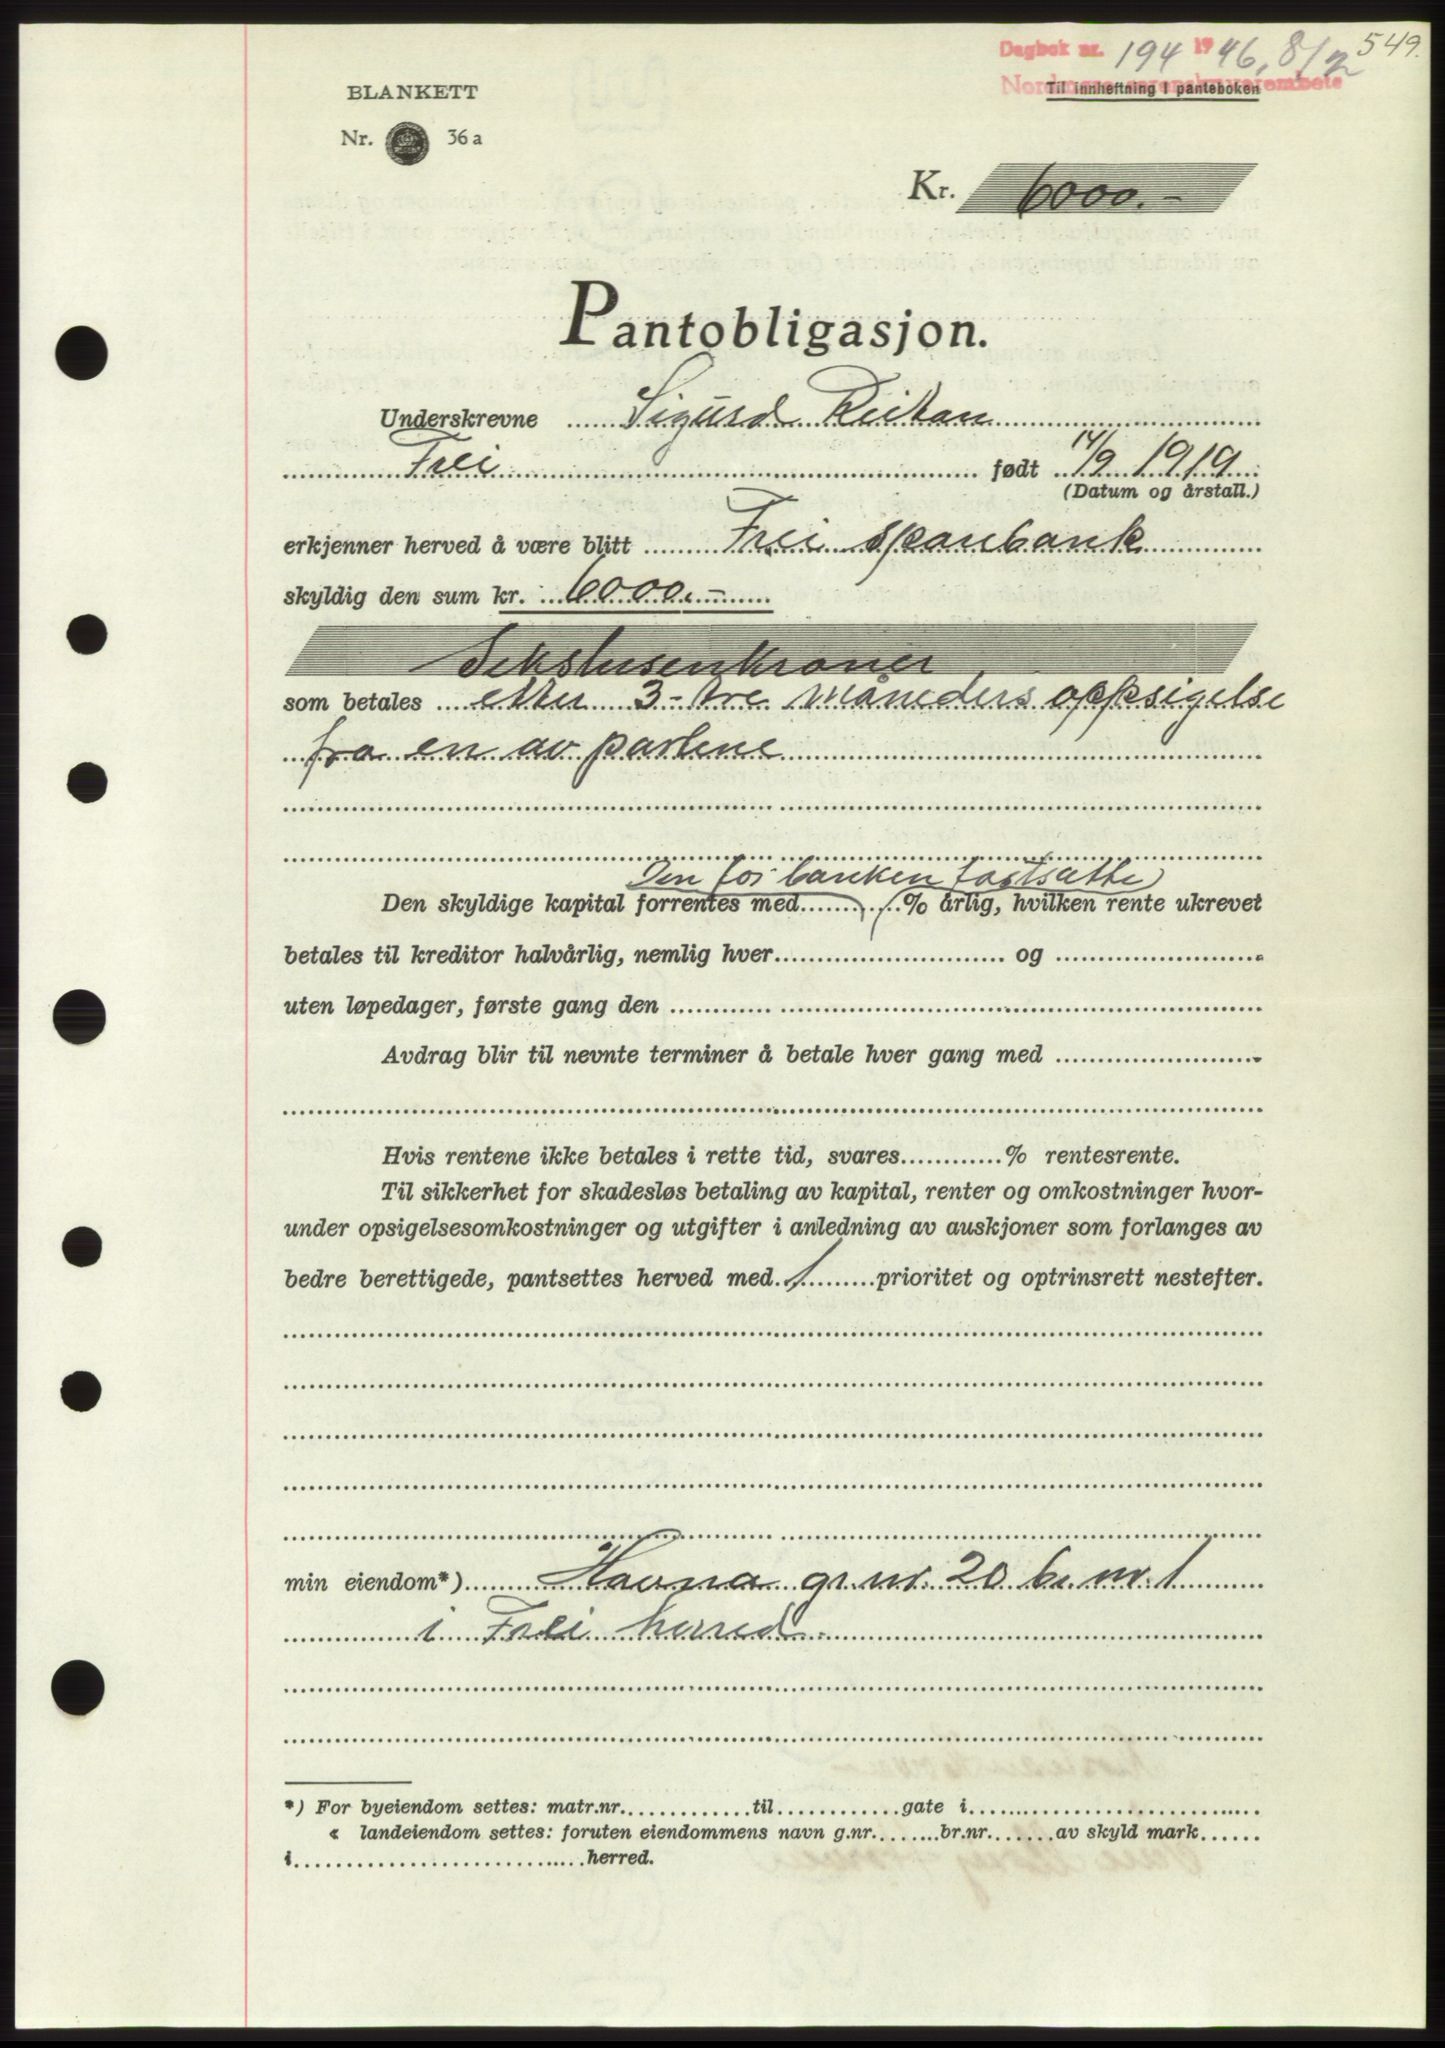 549.
Dagbok nr. 194 1946, 8/2
Nordmøre sorenskriverembete
Til innheftning i panteboken
BLANKETT
Nr. 36 a
Kr. 6000.-
Pantobligasjon.
Underskrevne Sigurd Reitan
Frei født 14/9 1919
(Datum og årstall.)
erkjenner herved å være blitt Frei sparebank
skyldig den sum kr. 6000.-
Sekstusenkroner
som betales etter 3- tre måneders oppsigelse
fra en av partene
Den for banken fastsatte
Den skyldige kapital forrentes med........ % årlig, hvilken rente ukrevet
betales til kreditor halvårlig, nemlig hver........ og ........
uten løpedager, første gang den ........
Avdrag blir til nevnte terminer å betale hver gang med ........
Hvis rentene ikke betales i rette tid, svares............% rentesrente.
Til sikkerhet for skadesløs betaling av kapital, renter og omkostninger hvor-
under opsigelsesomkostninger og utgifter i anledning av auskjoner som forlanges av
bedre berettigede, pantsettes herved med 1 prioritet og optrinsrett nestefter.
min eiendom*) Havna gr. nr. 20 br. nr. 1
i Frei herred
*) For byeiendom settes: matr.nr.............til............gate i............
« landeiendom settes: foruten eiendommens navn g.nr........br.nr........av skyld mark......
i............herred.